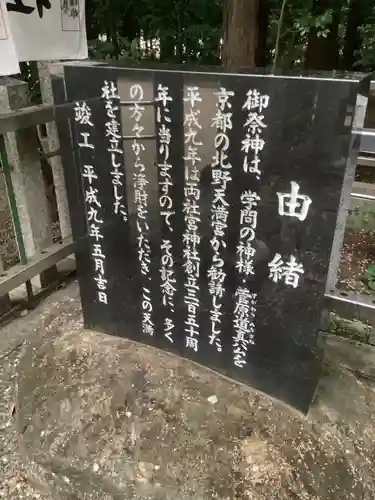 由緒
御祭神は、学問の神様　菅原道真公を
すがわらみちざね
京都の北野天満宮から勧請しました。
平成九年は両社宮神社創立三百五十周
年に当りますので、その記念に、多く
の方々から浄財をいただき、この天満
社を建立しました。
竣工　平成九年五月吉日